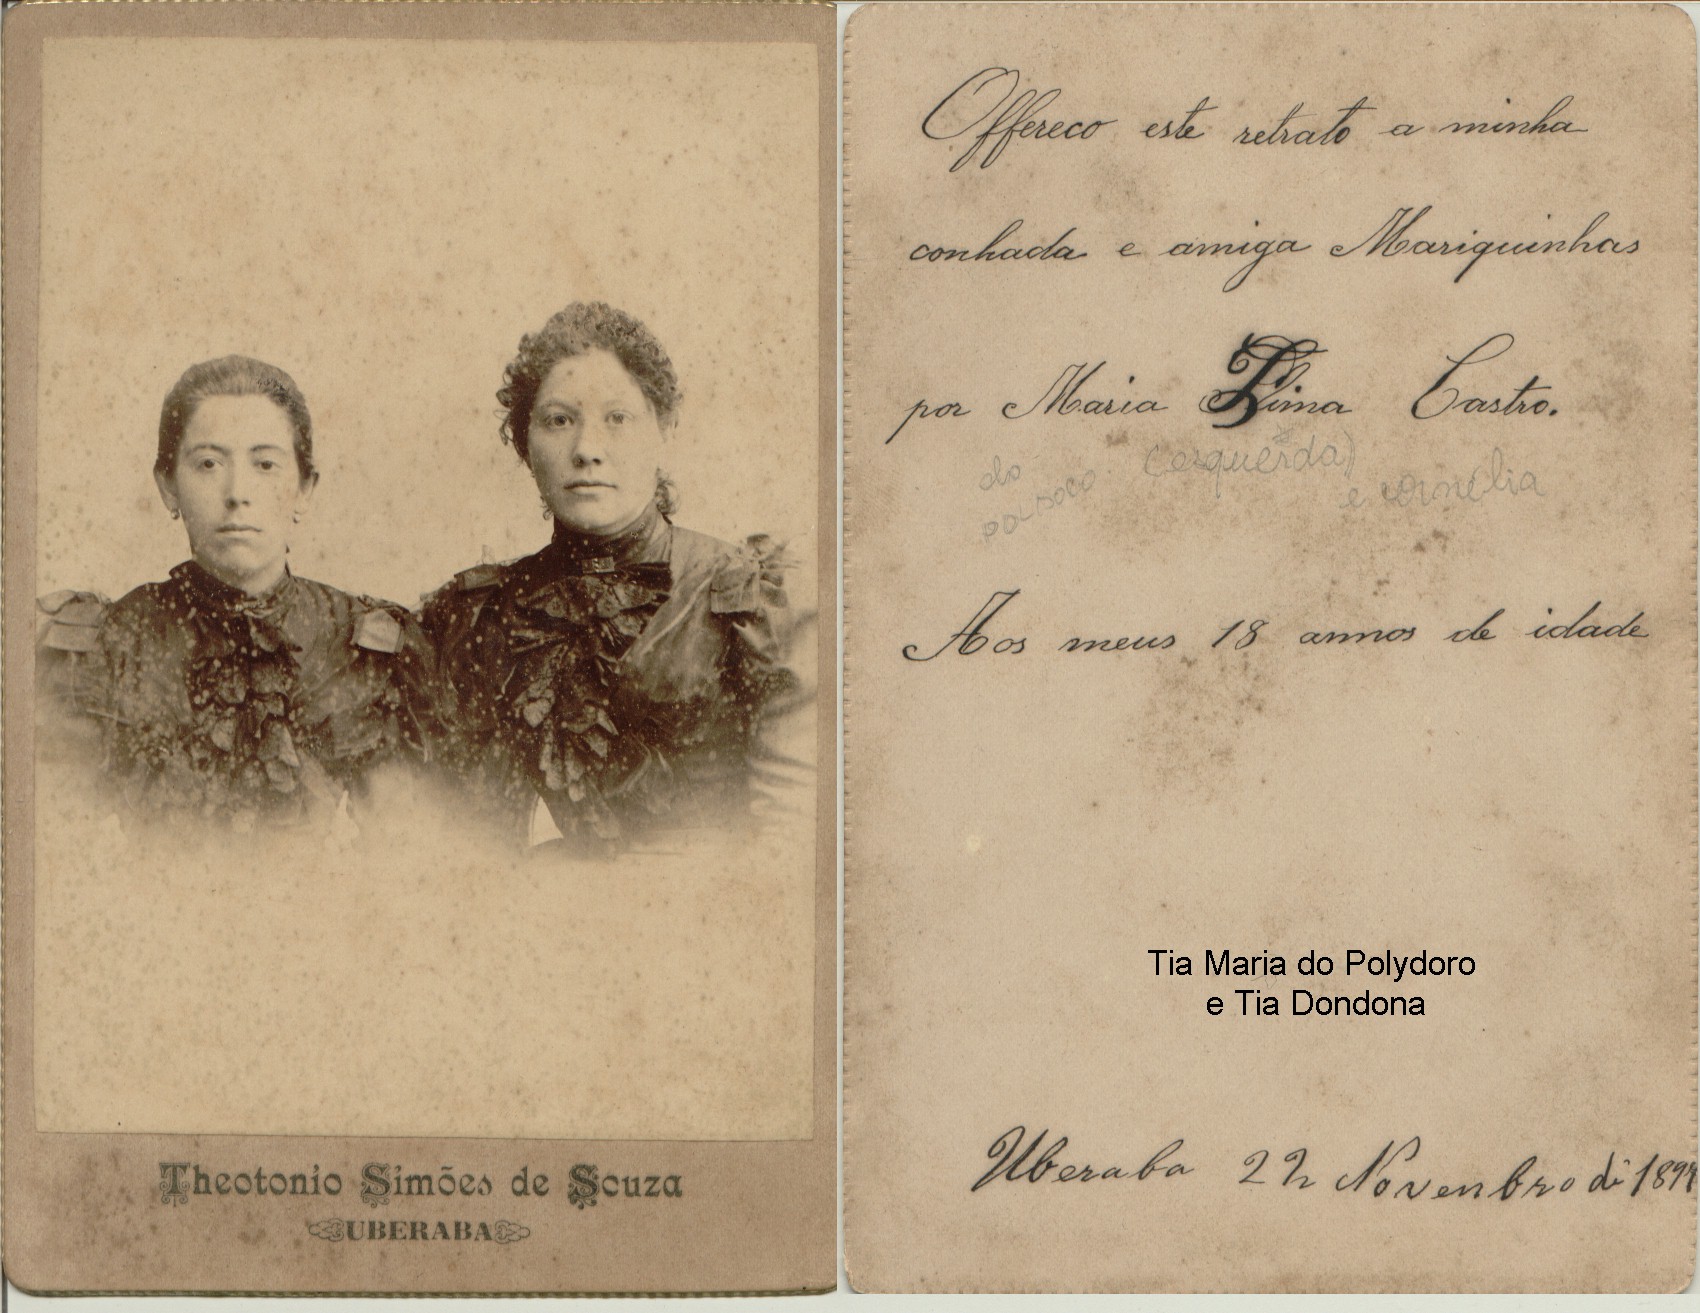 Theotonio Simões de Souza
UBERABA
Offereco este retrato a minha
conhada e amiga Mariquinhas
por Maria Lima Castro.
do (esquerda)
e cornélia
Aos meus 18 annos de idade
Tia Maria do Polydoro
e Tia Dondona
Uberaba 22 Novenbro di